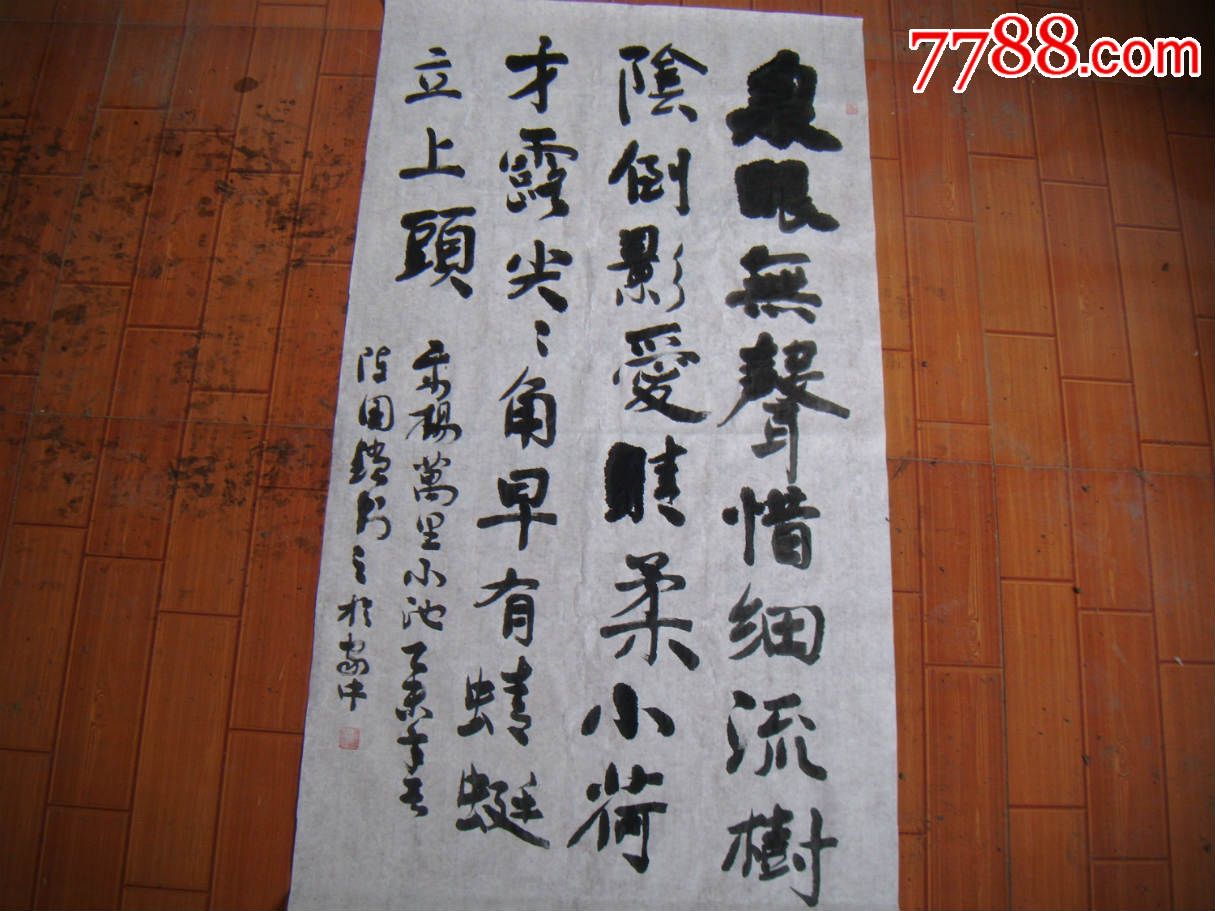 7788.com
泉眼無聲惜细流樹
陰倒影愛晴柔小荷
才露尖〻角早有蜻蜓
立上頭
宋楊萬里小池乙未年
国 之於家中